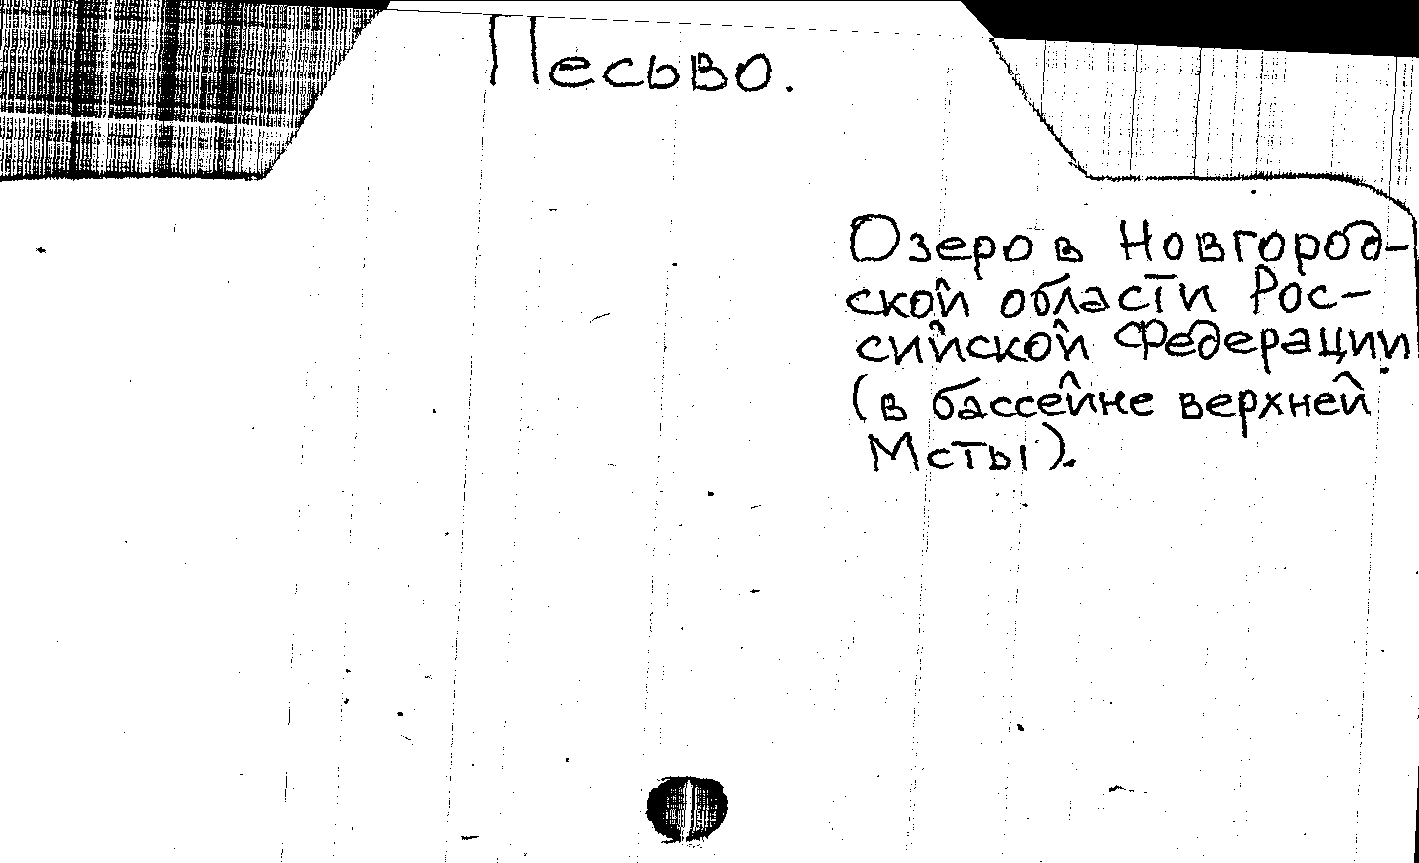 Песьво.
Озеро в Новгород-
ской области Рос-
сийской Федерации
(в бассейне верхней
Мсты).